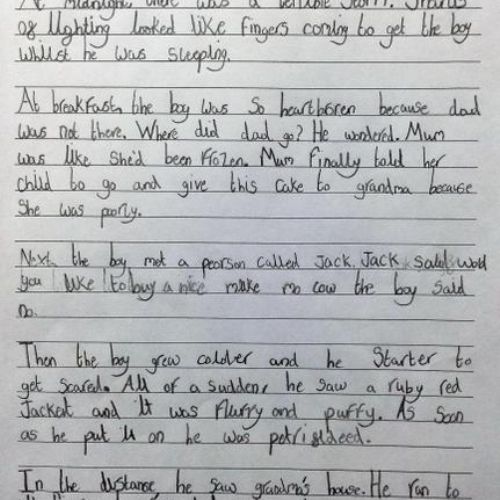 At midnight, there was a terrible storm. Strands
of lighting looked like fingers coming to get the boy
whilst he was sleeping.
At breakfast, the boy was so heartbroren because dad
was not there. Where did dad go? He wondered. Mum
was like she'd been frozen. Mum finally told her
child to go and give this cake to grandma because
she was poorly.
Next the boy met a pearson called Jack. Jack said wold
you like to buy a nice milke mo cow the boy said
no.
Then the boy grew colder and he starter to
get scared. All of a sudden, he saw a ruby red
Jacket and it was flurry and puffy. As soon
as he put it on he was
In the dustanse he saw grandma's house. He ran to